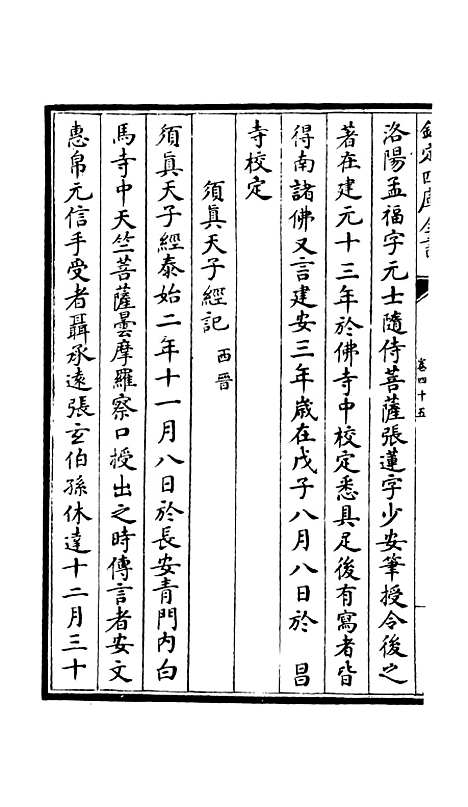 欽定四庫全書
卷四十五
洛陽孟福字元士隨侍菩薩張蓮字少安筆授令後之
著在建元十三年於佛寺中校定悉具足後有寫者皆
得南諸佛又言建安三年歲在戊子八月八日於 昌
寺校定
須真天子經記 西晉
須真天子經泰始二年十一月八日於長安青門內白
馬寺中天竺菩薩曇摩羅察口授出之時傳言者安文
惠帛元信手受者聶承遠張玄伯孫休達十二月三十